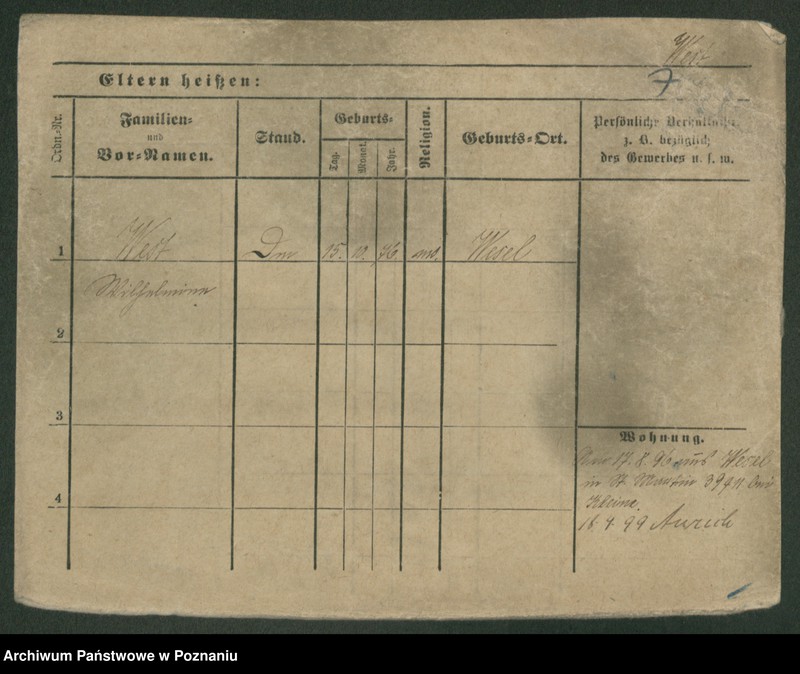 West
7
Eltern heißen:
Ordn.-Nr.
Familien-
und
Vor-Namen.
Stand.
Geburts-
Tag.
Monat.
Jahr.
Religion.
Geburts-Ort.
Persönliche Verhältnisse,
z. B. bezüglich
des Gewerbes u. s. w.
1
West
15.
10.
76
Wesel
Wilhelmine
2
3
4
Wohnung.
17. 8. 96 aus Wesel
in St. Martin 39
Kleine.
18. 4. 99 Aurich
Archiwum Państwowe w Poznaniu